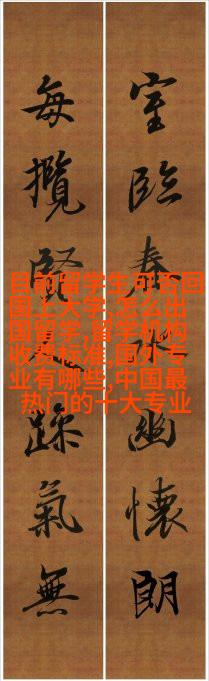 室臨春水幽懷朗
每攬賢躁氣無
目前留学生可否回
国上大学,怎么出
国留学,留学机构
收费标准,国外专
业有哪些,中国最
热门的十大专业